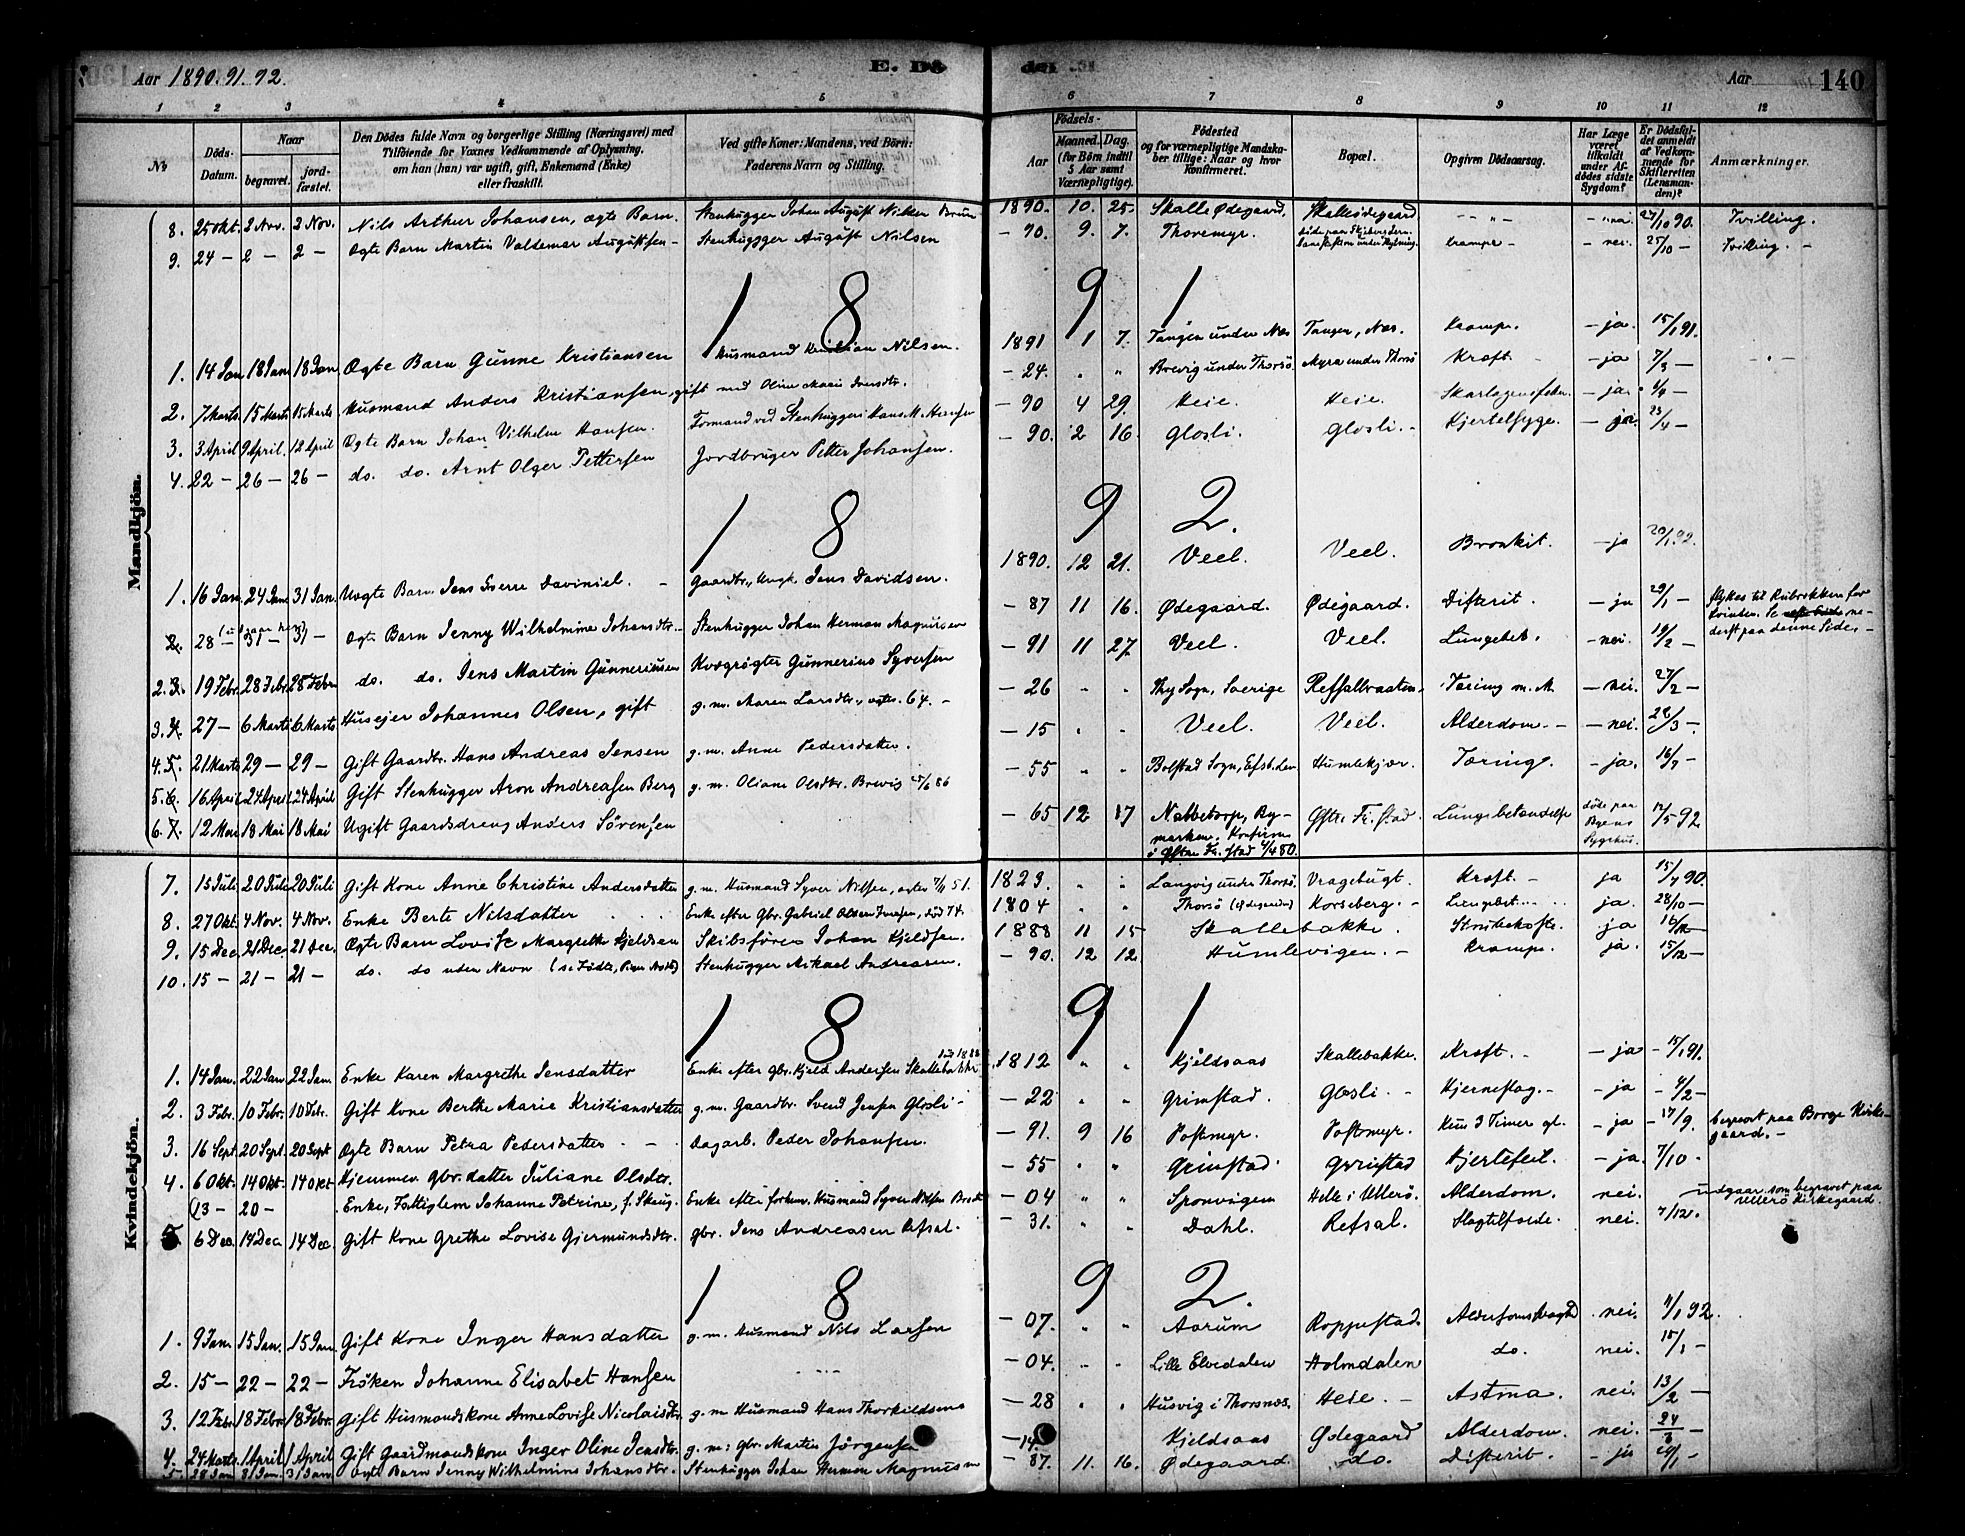 Aar 1890.91.92. E. Dö
döde. Aar 140
1 2 3 4 5 6 7 8 9 10 11 12
No Döds-Datum. Naar begravet. jord-fæstet. Den Dödes fulde Navn og borgerlige Stilling (Næringsvei) med Tilföiende for Voxnes Vedkommende af Oplysning, om han (hun) var ugift, gift, Enkemand (Enke) eller fraskilt. Ved gifte Koner: Mandens, ved Börn: Faderens Navn og Stilling. Födsels- Aar Maaned. Dag. (for Börn indtil 5 Aar samt Værnepligtige). Födested og for værnepligtige Mandskaber tillige: Naar og hvor Konfirmeret. Bopæl. Opgiven Dödsaarsag. Har Læge været tilkaldt under Afdödes sidste Sygdom? Er Dödsfaldet anmeldt af Vedkommende for Skifteretten (Lensmanden)? Anmærkninger.
Mandkjön.
8. 25 Okt. 2 Nov. 2 Nov. Nils Arthur Johansen, ægte Barn. Stenhugger Johan August Nilsen 1890. 10. 25. Skalle Ødegaard. Skalleødegaard - - " - - nei. 27/10 90. Tvilling.
9. 24 - 2 - 2 - Ægte Barn Martin Valdemar Augustsen - Stenhugger August Nilsen - 90. 9. 7. Thoremyr. krampe - - nei. 25/10 - Tvilling. -
1 8 9 1
1. 14 Jan 18 Jan 18 Jan Ægte Barn Gunne Kristiansen Husmand Kristian Nilsen. 1891 1 7. Tangen under Næs Tangen, Næs. Krampe. - ja. 15/1 91.
2. 7 Marts 15 Marts 15 Marts Husmand Anders Kristiansen, gift med Oline Marie - 24. " " Brevig under Thorsö. Myra under Thorsö Kræft. - - ja 7/3 - - " -
3. 3 April 9 April. 12 April Ægte Barn Johan Vilhelm Hansen. Formand ved Stenhuggeri Hans M. Hansen - 90 4 29. Heie. Heie. Skarlagensfeber. - ja. 4/4 -
4. 22 - 26 - 26 - do. do. Arnt Olger Pettersen Jordbruger Petter Johansen. - 90. 2 16. Glosli. Glosli. - Kjertelsyge. - ja. 23/4 -
1 8 9 2.
1. 16 Jan. 24 Jan 31 Jan. Uægte Barn Jens Sverre Daviniel. - Gaardbr., Ungk. Jens Davidsen. 1890. 12 21. Veel. Veel. Bronkit. - ja 20/1 92.
2. 28 - 31 - 31 - Ægte Barn Jenny Wilhelmine Johansdtr. - Stenhugger Johan Herman Magnusen - 87 11 16. Ødegaard. Ødegaard. Difterit. - ja 29/1 - flykes til Rubrikken for Kvinden. Se nederst paa denne Side. -
2. 3. 19 Febr. 28 Febr 28 Febr do. do. Jens Martin Gunneriussen Kvægrögter Gunnerius Syversen - 91 11 27. Veel. Veel. Lungebet. - nei. 19/2 -
3. 4. 27 - 6 Marts 6 Marts Husejer Johannes Olsen, gift g. m. Maren Larsdtr., 64. - - 26 " " Thy Sogn, Sverige Refsalbraaten. Tæring m. M. - nei. 27/2 -
4. 5. 21 Marts 29 - 29 - Gift Gaardbr. Hans Andreas Jensen g. m. Anne Pedersdatter. - 15 " " Veel. Veel. Alderdom. - - nei. 28/3 -
5. 6. 16 April 24 April 24 April Gift Stenhugger Aron Andreasen Berg g. m. Oliane Olsdtr. Brevig - 55 " " Bolstad Sogn, Humlekjær. Tæring. - ja. 16/7 -
6. 7. 12 Mai 18 Mai 18 Mai Ugift Gaardsdreng Anders Sörensen - 65 12 17 Nabbetorp, Bymarken. Konfirm. i Østre Fr. stad 4/4 80. Østre Fr. stad. Lungebetændelse döde paa Byens Sygehus. 17/5 92
Kvindekjön.
7. 15 Juli 20 Juli 20 Juli Gift Kone Anne Christine Andersdatter g. m. Husmand Syver Nilsen, 51. 1823. " " Langvig under Thorsö. Vragebugt. Kræft. - ja 15/7 90.
8. 27 Okt. 4 Nov. 4 Nov. Enke Berte Nilsdatter Enke efter gbr. Gabriel Olsen, död 74. 1804 " " Thorsö Korseberg. - Lungebet. ja. 28/10 -
9. 15 Dec 21 Dec. 21 Dec. Ægte Barn Lovise Margrethe Kjeldsen Skibsförer Johan Kjeldsen. 1888 11 15 Skallebakke. Strubehoste. ja 16/12 -
10. 15 - 21 - 21 - do. do uden Navn Stenhugger Mikael Andreasen. - 90. 12 12. Humlevigen. - Krampe. ja. 15/12 -
1 8 9 1
1. 14 Jan. 22 Jan 22 Jan. Enke Karen Margrethe Jensdatter Enke efter gbr. Kjeld Andersen Skallebakke 1812 " " Kjeldsaas Skallebakke. Kræft. - - ja - 15/1 91.
2. 3 Febr. 10 Febr. 10 Febr. Gift Kone Berthe Marie Kristiansdatter g. m. Gaardbr. Svend Jensen Glosli - - 22 " " Grimstad. Glosli. - Hjerneslag. - - ja - 4/2 -
3. 16 Sept 20 Sept. 20 Sept Ægte Barn Petra Pedersdatter - - Dagarb. Peder Johansen. - 91. 9 16 Postmyr. Postmyr. Kun 3 Timer gl. - ja - 17/9. begravet paa Borge Kirkegaard. -
4. 6 Okt. 14 Okt. 14 Okt Hjemmev. gbr. datter Juliane Olsdtr. - 55 " " Grimstad Grimstad Hjertefeil. - ja. 7/10 -
(13 - 20 - Enke, Fattiglem Johanne Petrine, f. Skaug. Enke efter forhen. Husmand Syver Nilsen - 04 " " Sponvigen Helle i Ullerö. Alderdom. nei. udgaar som begravet paa Ullerö Kirkegaard.
5 6 Dec. 14 Dec. 14 Dec. Gift Kone Grethe Lovise Gjermundsdtr. gbr. Jens Andreasen Refsal. - 31. " " Dahl. Refsal. Slagtilfælde. nei. 7/12.
1 8 9 2.
1. 9 Jan. 15 Jan. 15 Jan. Gift Kone Inger Hansdatter g. m. Husmand Nils Larsen - 07. " " Aarum Roppestad. nei. 11/1 92.
2. 15 - 22 - 22 - Fröken Johanne Elisabet Hansen - - - - 04. " " Lille Elvedalen Holmdalen do. nei. 15/1 -
3. 12 Febr 18 Febr. 18 Febr. Gift Husmandskone Anne Lovise Nicolaisdtr. g. m Husmand Hans Thorkildsen - 28 " " Husvig i Thorsnæs. Heie. - Astma. nei. 13/2 -
4. 24 Marts 1 April 1 April Gift Gaardmandskone Inger Oline Jensdtr. g. m: gbr. Martin Jörgensen - 14 Kjeldsaas Ødegaard Alderdom. nei. 24/3 -
5 28 Jan 31 Jan. 31 Jan. Ægte Barn Jenny Wilhelmine Johansdtr. Stenhugger Johan Herman Magnusen - 87. 11. 16. Ødegaard. do. Difterit. - ja 29/1 -